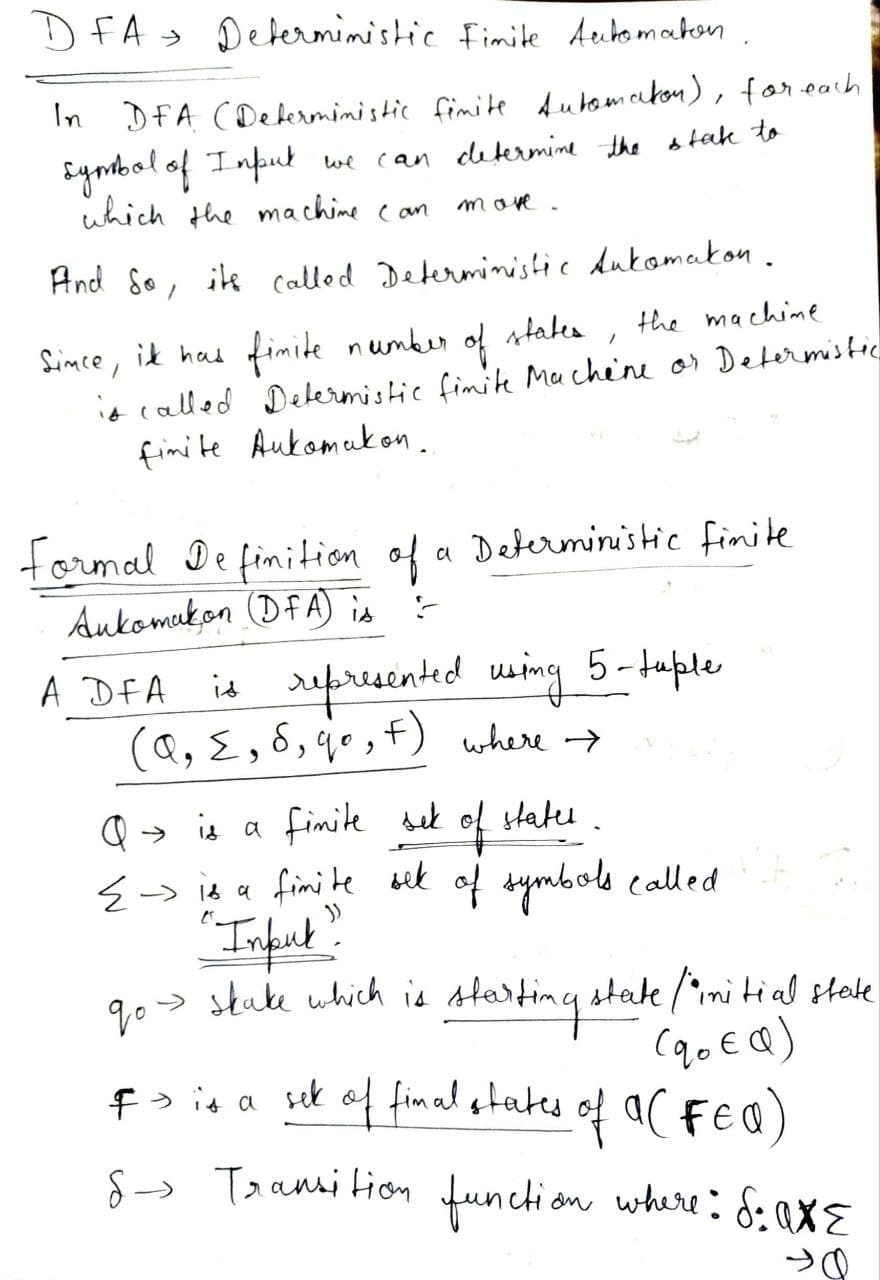 DFA → Deterministic Finite Automaton.
In DFA (Deterministic finite Automaton), for each
symbol of Input we can determine the state to
which the machine can move.
And So, its called Deterministic Automaton.
Since, it has finite number of states, the machine
is called Determistic finite Machine or Determistic
finite Automaton.
Formal Definition of a Deterministic finite
Automaton (DFA) is :-
A DFA is represented using 5-tuple
(Q, Σ, δ, q0, F) where →
Q → is a finite set of states.
Σ → is a finite set of symbols called
"Input".
q0 → state which is starting state / initial state
(q0 ∈ Q)
F → is a set of final states of Q (F ∈ Q)
δ → Transition function where: δ: Q X Σ
→ Q